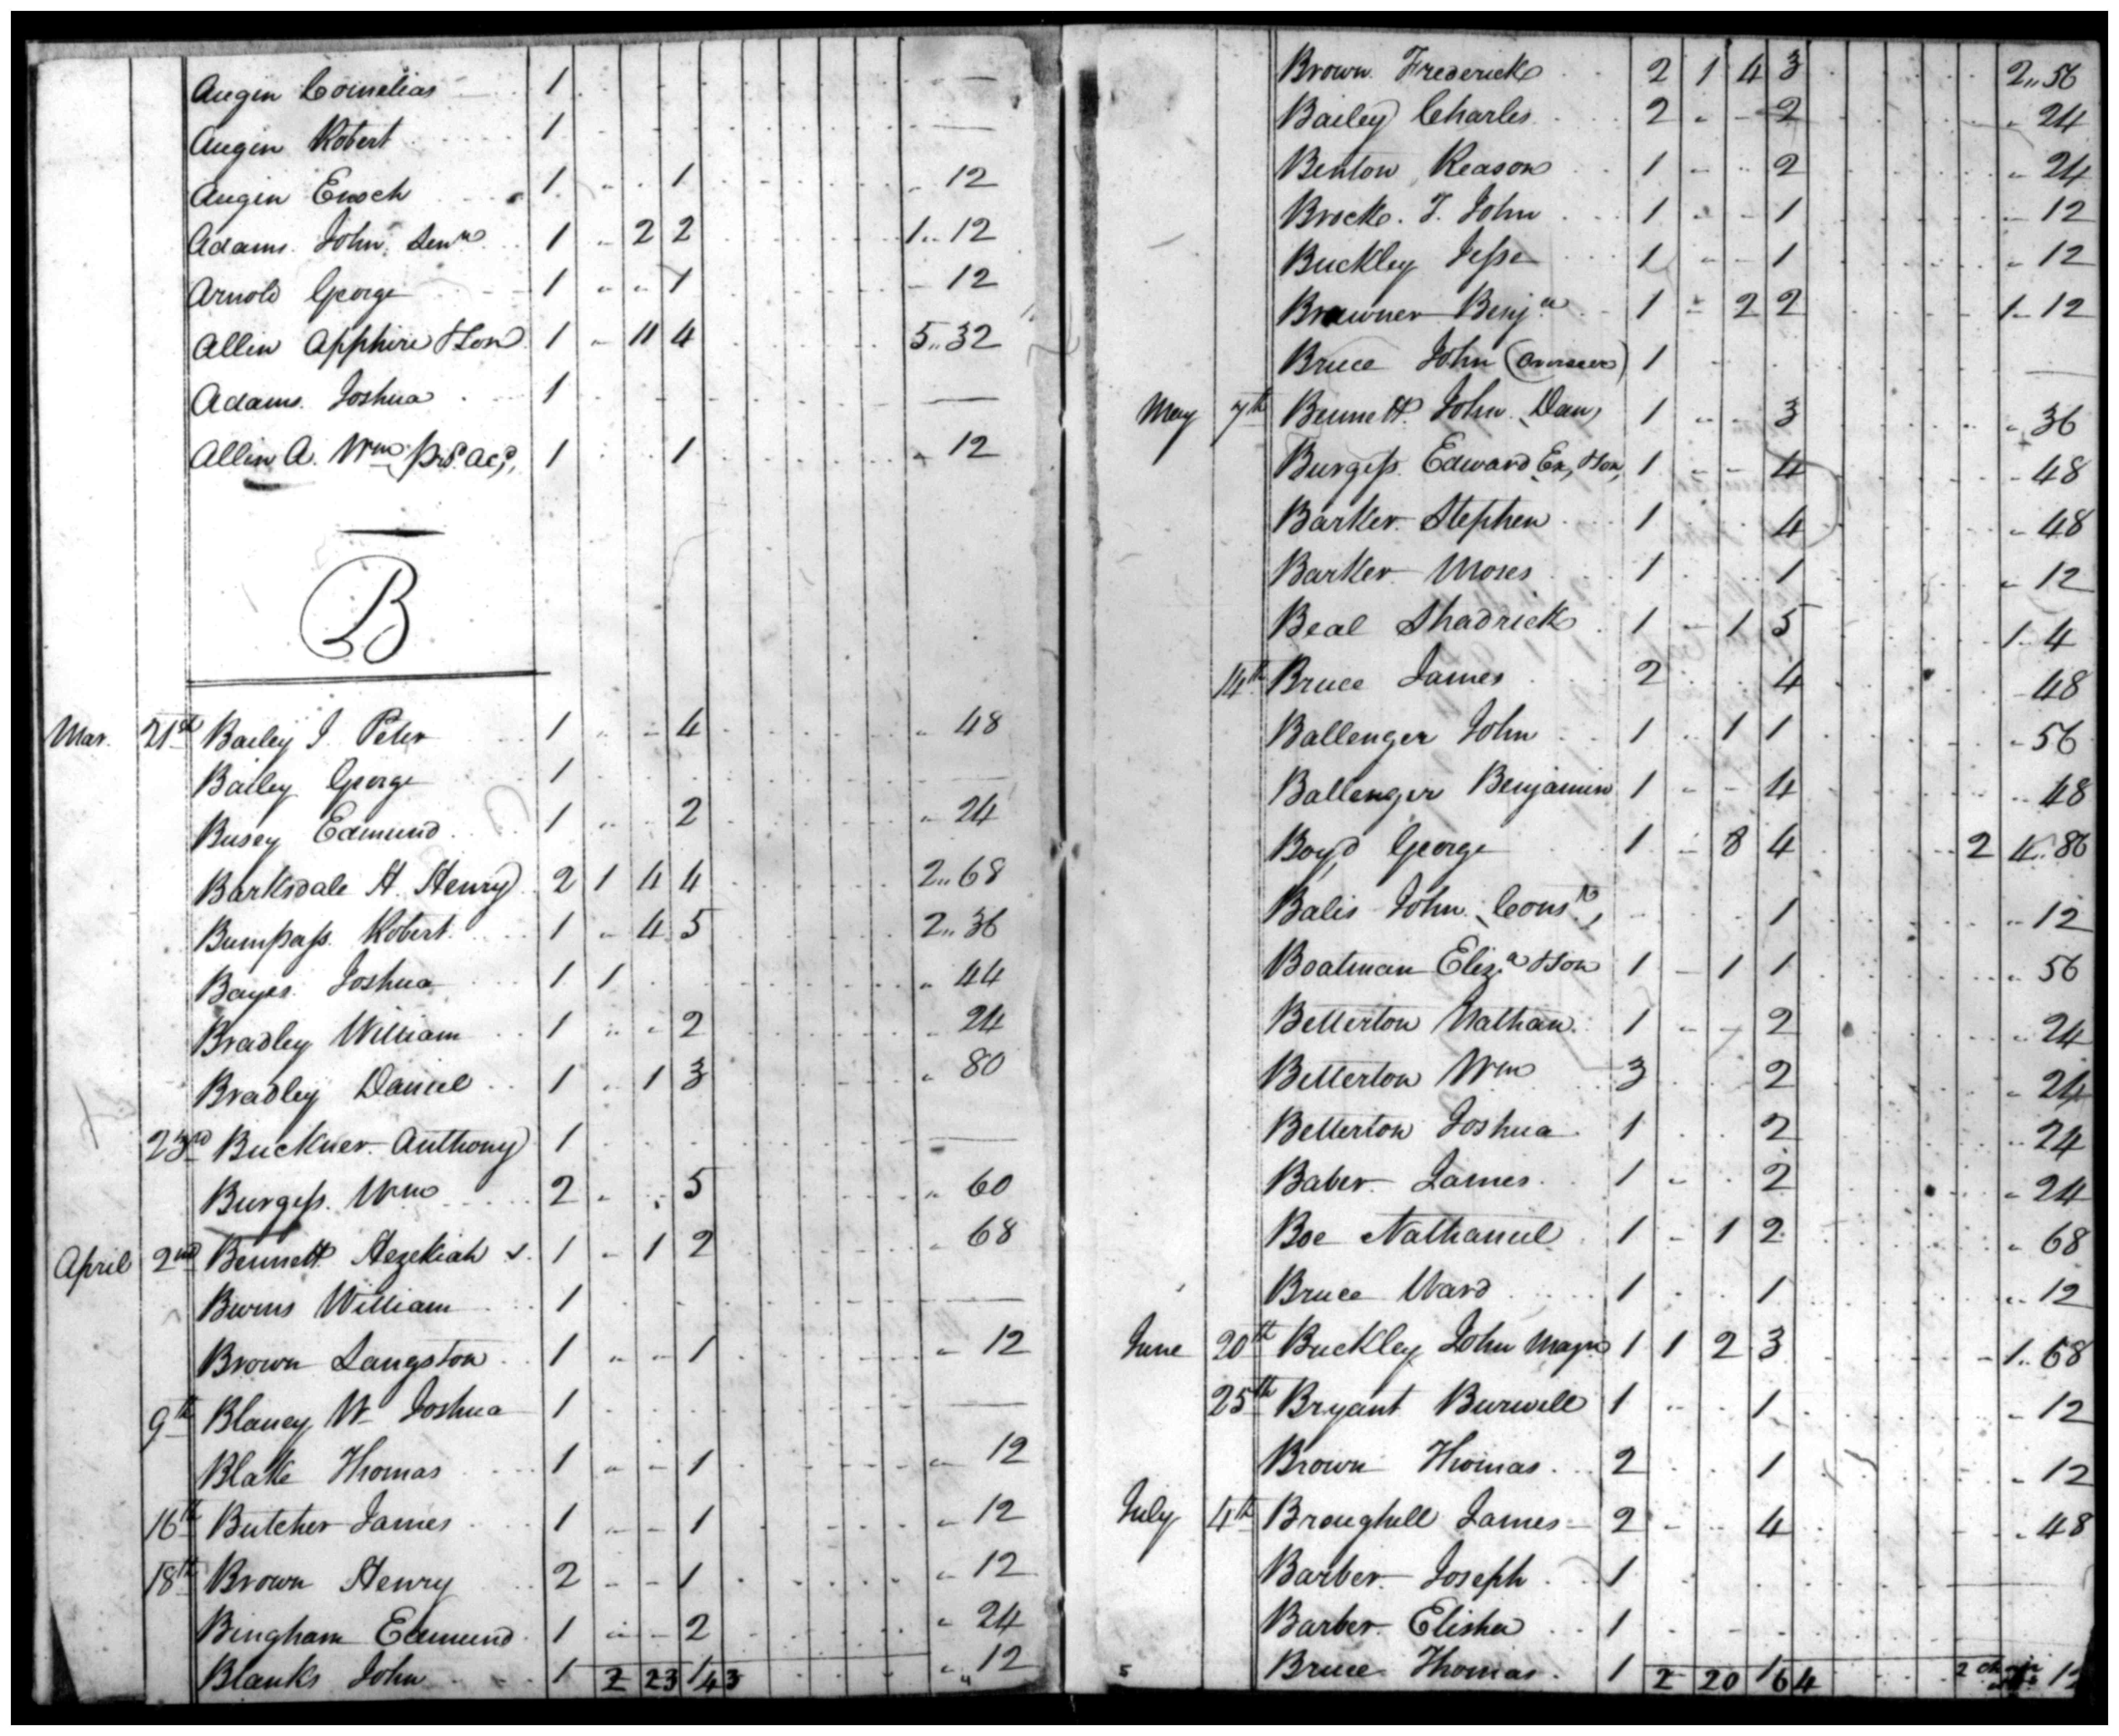 Augin Cornelias 1 —
Augin Robert 1 —
Augin Enoch 1 1 " 12
Adams John Senr 1 " 2 2 1 " 12
Arnold George 1 " " 1 " 12
Allin Apphire & Son 1 " 11 4 5 " 32
Adams Joshua 1 —
Allin A. Wm 1 1 " 12
B
Mar. 21st Bailey J. Peter 1 " " 4 " 48
Bailey George 1 —
Busey Edmund 1 2 " 24
Barksdale H. Henry 2 1 4 4 2 " 68
Bumpass Robert 1 " 4 5 2 " 36
Bayes Joshua 1 1 " 44
Bradley William 1 " " 2 " 24
Bradley Daniel 1 " 1 3 " 80
23rd Buckner Anthony 1 —
Burgess Wm 2 " " 5 " 60
April 2nd Bennett Hezekiah 1 " 1 2 " 68
Burns William 1 —
Brown Langston 1 " " 1 " 12
9th Blaney W Joshua 1 —
Blake Thomas 1 " " 1 " 12
16th Butcher James 1 " " 1 " 12
18th Brown Henry 2 " " 1 " 12
Bingham Edmund 1 " " 2 " 24
Blanks John 1 " 12
2 23 143
Brown Frederick 2 1 4 3 2 " 56
Bailey Charles 2 " " 2 " 24
Benton Reason 1 " " 2 " 24
Brock T. John 1 " " 1 " 12
Buckley Jesse 1 " " 1 " 12
Brawner Benja 1 " 2 2 1 " 12
Bruce John (Overseer) 1 —
May 7th Bennett John Dan, 1 " " 3 " 36
Burgess Edward Ex, & Son, 1 " " 4 " 48
Barker Stephen 1 4 " 48
Barker Moses 1 1 " 12
Beal Shadrick 1 " 1 5 1 " 4
14th Bruce James 2 4 " 48
Ballenger John 1 " 1 1 " 56
Ballenger Benjamin 1 " " 4 " 48
Boyd George 1 " 8 4 2 4 " 86
Balis John Const, 1 " 12
Boatman Eliza & Son 1 " 1 1 " 56
Betterton Nathan 1 " " 2 " 24
Betterton Wm 3 2 " 24
Betterton Joshua 1 2 " 24
Baber James 1 " 2 " 24
Boe Nathaniel 1 " 1 2 " 68
Bruce Ward 1 1 " 12
June 20th Buckley John Majr 1 1 2 3 1 " 68
25th Bryant Burwell 1 " 1 " 12
Brown Thomas 2 1 " 12
July 4th Broughell James 2 " " 4 " 48
Barber Joseph 1 —
Barber Elisha 1
Bruce Thomas 1 1 12
2 20 64 2